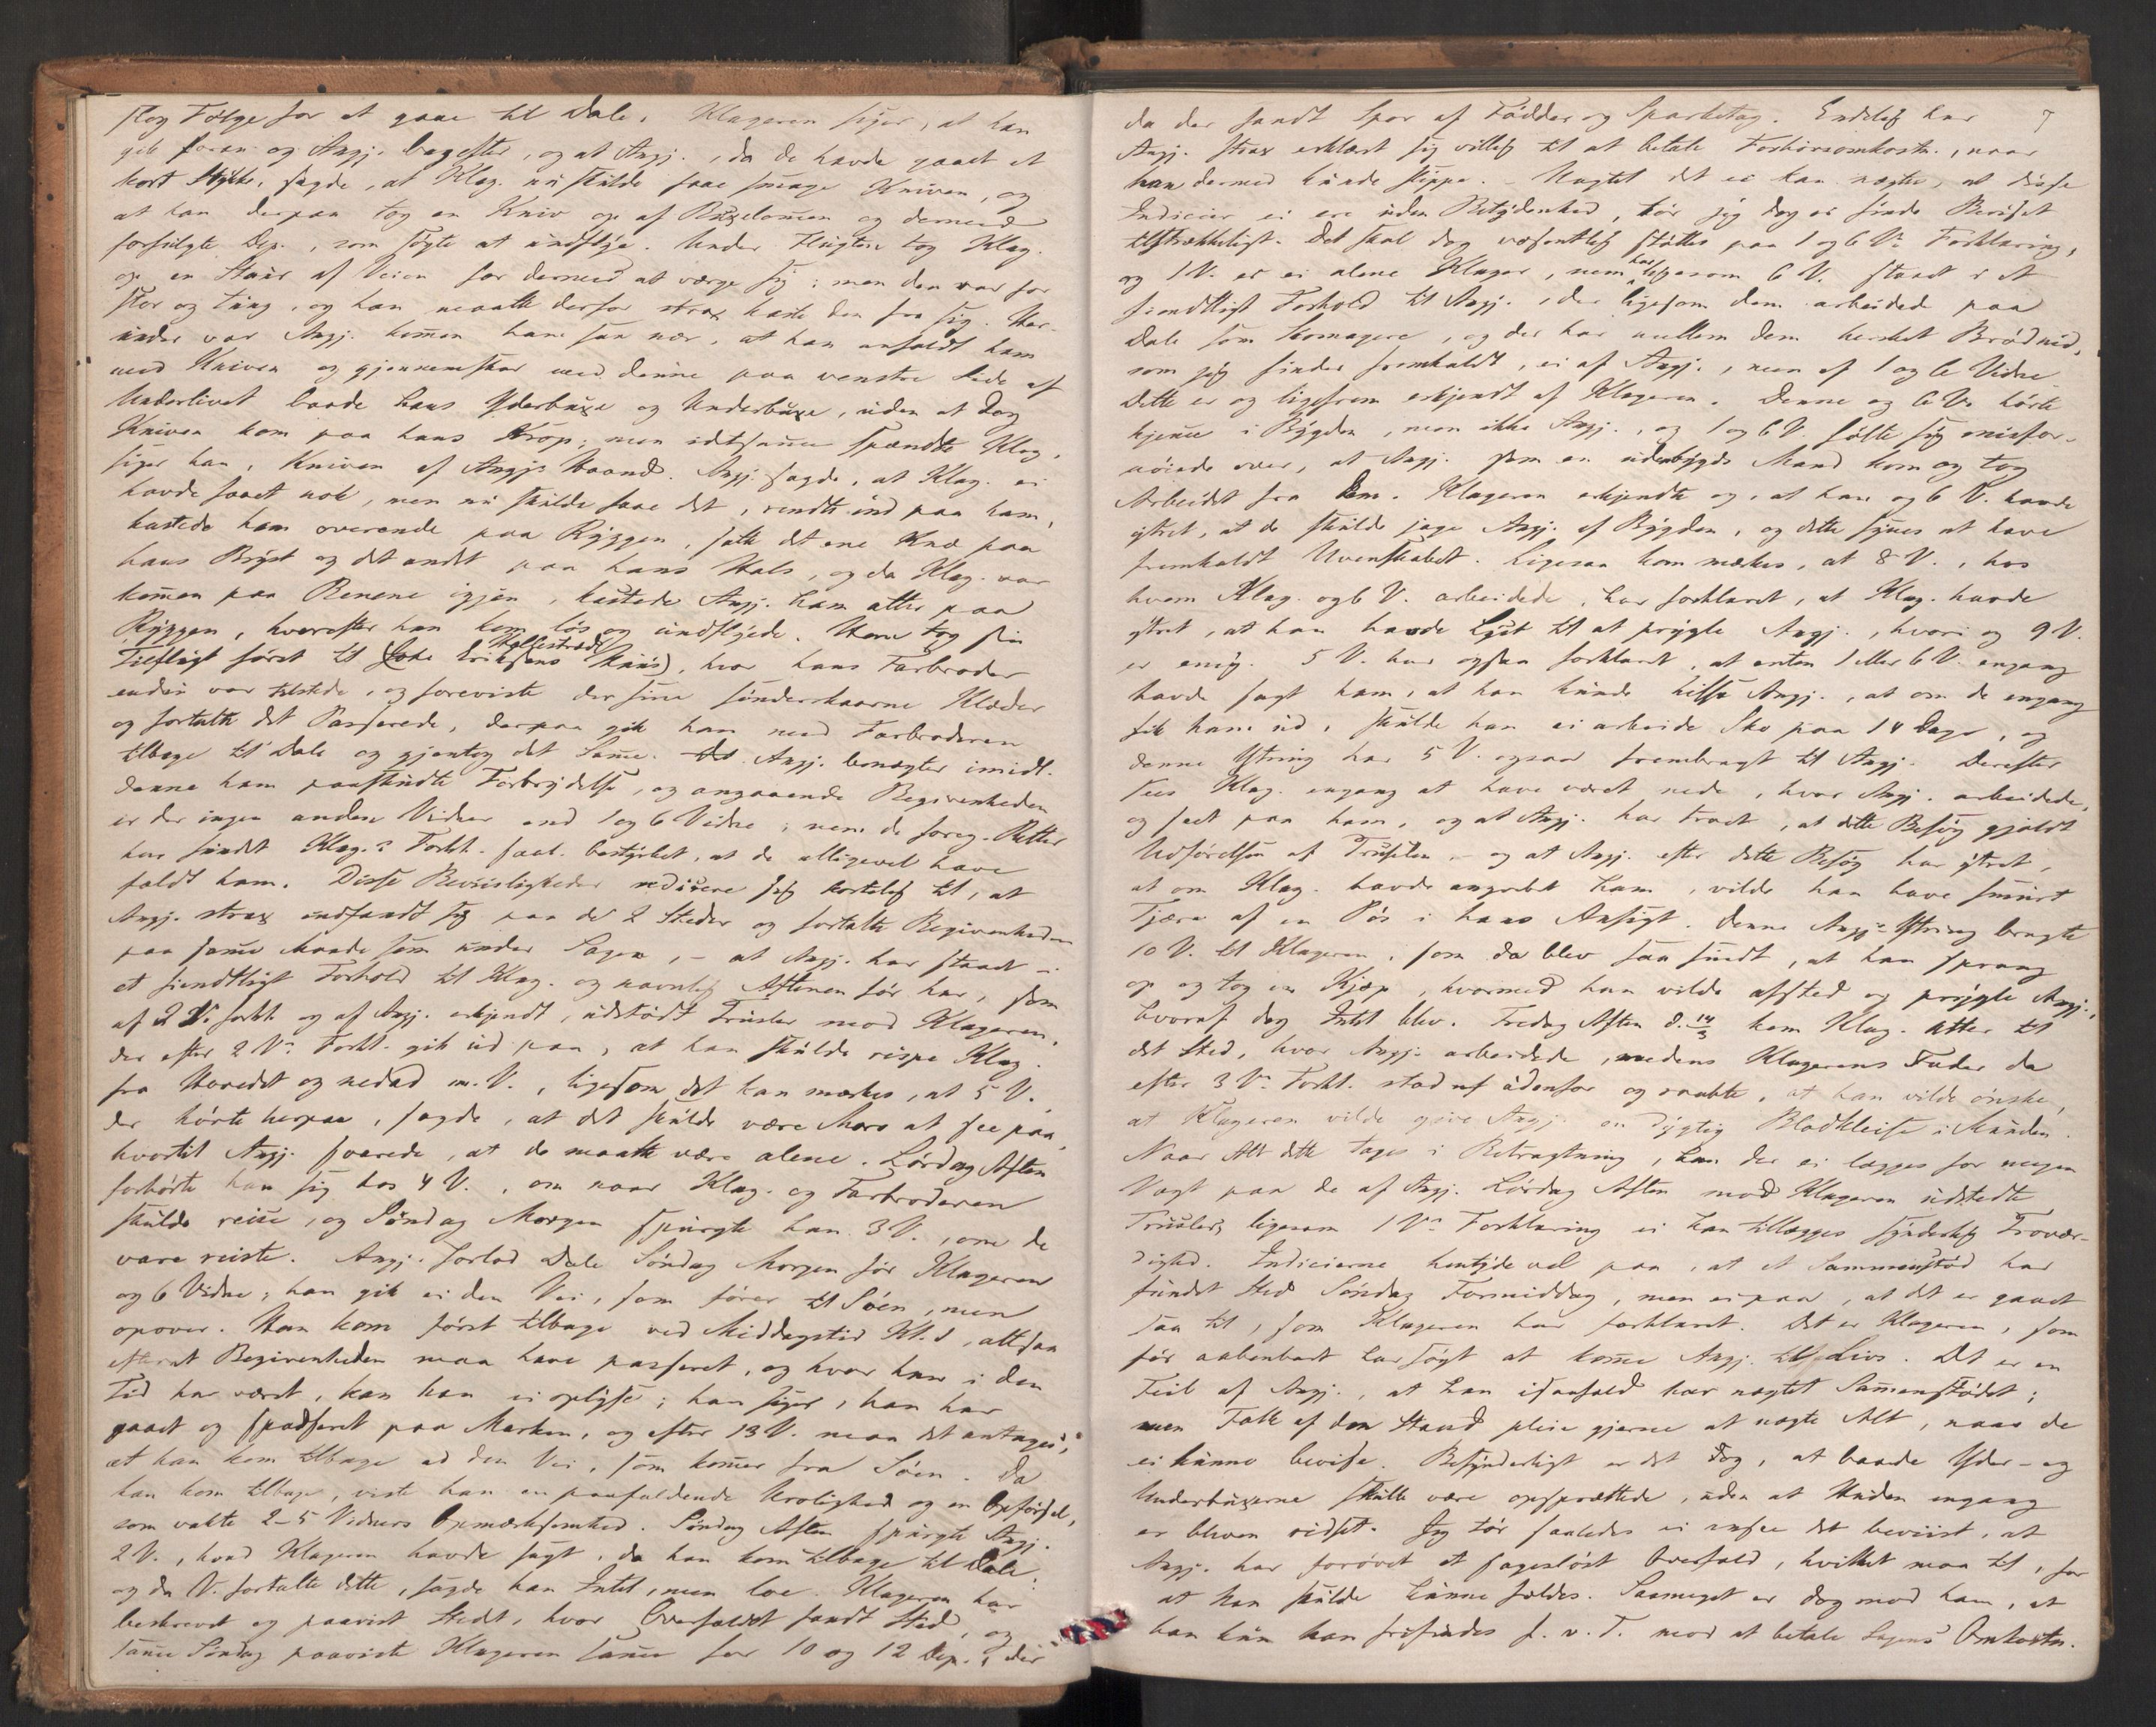 slog Følge for at gaae til Dale. Klageren siger, at han
gik foran og Angj. bagefter, og at Angj., da de havde gaaet et
kort Stykke, sagde, at Klag. nu skulde faae smage Kniven, og
at han derpaa tog en Kniv op af Buxelommen og dermed
forfulgte Dep., som søgte at undflye. Under Flugten tog Klag.
op en Stuur af Veien for dermed at værge sig; men den var for
stor og tung, og han maatte derfor strax kaste den fra sig. Her-
under var Angj. kommen ham saa nær, at han anfaldt ham
med Kniven og gjennemskar med denne paa venstre Side af
Underlivet baade hans Yderbuxe og Underbuxe, uden at dog
Kniven kom paa hans Krop; men idetsamme spændte Klag.,
siger han, Kniven af Angjs Haand. Angj. sagde, at Klag. ei
havde faaet nok, men nu skulde faae det, rendte ind paa ham,
kastede ham overende paa Ryggen, satte det ene Knæ paa
hans Bryst og det andet paa hans Hals, og da Klag. var
kommen paa Benene igjen, kastede Angj. ham atter paa
Ryggen, hvorefter han kom løs og undflyede. Han tog sin
Tilflugt først til (Lohe Eriksens Huus), hvor hans Farbroder
endnu var tilstede, og foreviste der sine sønderskaarne Klæder
og fortalte det Passerede, derpaa gik han med Farbroderen
tilbage til Dale og gjentog det Samme. Angj. benægter imidl.
denne ham paasigtede Forbrydelse, og angaaende Begivenheden
er der ingen anden Vidner end 1 og 6 Vidne; men de foreg. Retter
har fundet Klag.s Forkl. saal. bestyrket, at de alligevel have
fældt ham. Disse Beviisligheder reducere sig kortelig til, at
Angj. strax indfandt sig paa de 2 Steder og fortalte Begivenheden
paa samme Maade som under Sagen, – at Angj. har staaet i
et fiendtligt Forhold til Klag. og navnlig Aftenen før har, som
af 2 V. forkl. og af Angj. erkjendt, udstødt Trusler mod Klageren,
der efter 2 Vs Forkl. gik ud paa, at han skulde rispe Klag.
fra Hovedet og nedad m.V., ligesom det kan mærkes, at 5 V.,
der hørte herpaa, sagde, at det skulde være Moro at see paa,
hvortil Angj. svarede, at de maatte være alene. Lørdag Aften
forhørte han sig hos 4 V., om naar Klag. og Farbroderen
skulde reise, og Søndag Morgen spurgte han 3 V., om de
vare reiste. Angj. forlod Dale Søndag Morgen før Klageren
og 6 Vidne; han gik ei den Vei, som fører til Søen, men
opover. Han kom først tilbage ved Middagstid Kl. 1, altsaa
efterat Begivenheden maa have passeret, og hvor han i den
Tid har været, kan han ei oplyse; han siger, han har
gaaet og spadseret paa Marken, og efter 13 V. maa det antages,
at han kom tilbage ad den Vei, som kommer fra Søen. Da
han kom tilbage, viste han en paafaldende Urolighed og en Opførsel,
som vakte 2–5 Vidners Opmærksomhed. Søndag Aften spurgte Angj.
2 V., hvad Klageren havde sagt, da han kom tilbage til Dale,
og da V. fortalte dette, sagde han Intet, men loe. Klageren har
beskrevet og paavist Stedet, hvor Overfaldet fandt Sted, og
samme Søndag paaviste Klageren samme for 10 og 12 Dep., der
7
da der fandt Spor af Fødder og Sparketag. Endelig har
Angj. strax erklært sig villig til at betale Forhørsomkostn., naar
han dermed kunde slippe. – Uagtet det ei kan nægtes, at disse
Indicier ei ere uden Betydenhed, tør jeg dog ei finde Beviset
tilstrækkeligt. Det skal dog væsentlig støttes paa 1 og 6 Vs Forklaring,
og 1 V. er ei alene Klager, men har ligesom 6 V. staaet i et
fiendtligt Forhold til Angj., der ligesom dem arbeidede paa
Dale som Skomagere, og der har mellem dem hersket Brødnid,
som jeg finder fremkaldt, ei af Angj., men af 1 og 6 Vidne
Dette er og ligefrem erkjendt af Klageren. Denne og 6 V. hørte
hjemme i Bygden, men ikke Angj., og 1 og 6 V. følte sig misfor-
nøiede over, at Angj. som en udenbygds Mand kom og tog
Arbeidet fra dem. Klageren erkjendte og, at han og 6 V. havde
ytret, at de skulde jage Angj. af Bygden, og dette synes at have
fremkaldt Uvenskabet. Ligesaa kan mærkes, at 8 V., hos
hvem Klag. og 6 V. arbeidede, har forklaret, at Klag. havde
ytret, at han havde Lyst til at prygle Angj., hvori og 9 V.
er enig. 5 V. har ogsaa forklaret, at enten 1 eller 6 V. engang
havde sagt ham, at han kunde hilse Angj., at om de engang
fik ham ud, skulde han ei arbeide Sko paa 14 Dage, og
denne Ytring har 5 V. ogsaa frembragt til Angj. Derefter
sees Klag. engang at have været nede, hvor Angj. arbeidede,
og seet paa ham, og at Angj. har troet, at dette Besøg gjaldt
Udførelsen af Truslen, – og at Angj. efter dette Besøg har ytret,
at om Klag. havde angrebet ham, vilde han have smurt
Tjære af en Pøs i hans Ansigt. Denne Angjs Ytring bragte
10 V. til Klageren, som da blev saa sindt, at han sprang
op og tog en Kjæp, hvormed han vilde afsted og prygle Angj.,
hvoraf dog Intet blev. Fredag Aften d. 14/3 kom Klag. atter til
det Sted, hvor Angj. arbeidede, medens Klagerens Fader da
efter 3 Vs Forkl. stod udenfor og raabte, at han vilde ønske,
at Klageren vilde give Angj. en dygtig Blodkleise i Munden.
Naar Alt dette tages i Betragtning, kan der ei lægges for megen
Vægt paa de af Angj. Lørdag Aften mod Klageren udstedte
Trusler, ligesom 1 Vs Forklaring ei kan tillægges synderlig Trovær-
dighed. Indicierne hentyde vel paa, at et Sammenstød har
fundet Sted Søndag Formiddag, men ei paa, at det er gaaet
saa til, som Klageren har forklaret. Det er Klageren, som
før aabenbart har søgt at komme Angj. tillivs. Det er en
Feil af Angj., at han isaafald har nægtet Sammenstødet;
men Folk af den Stand pleie gjerne at nægte Alt, naar de
ei kunne bevise. Besynderligt er det dog, at baade Yder- og
Underbuxerne skulle være opsprættede, uden at Huden engang
er bleven ridset. Jeg tør saaledes ei ansee det beviist, at
Angj. har forøvet et sagesløst Overfald, hvilket maa til, for
at han skulde kunne fældes. Saameget er dog mod ham, at
han kun kan frifindes f. v. T. mod at betale Sagens Omkostn.